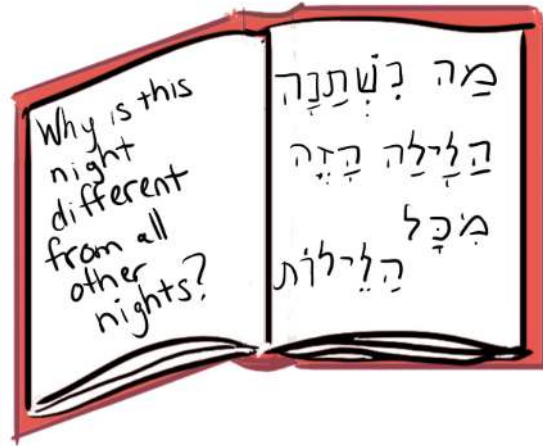 Why is this
night
different
from all
other
nights?
מַה נִּשְׁתַנָּה
הַלָּילַה הָזֶּה
מִכָּל
הַלֵּילוֹת